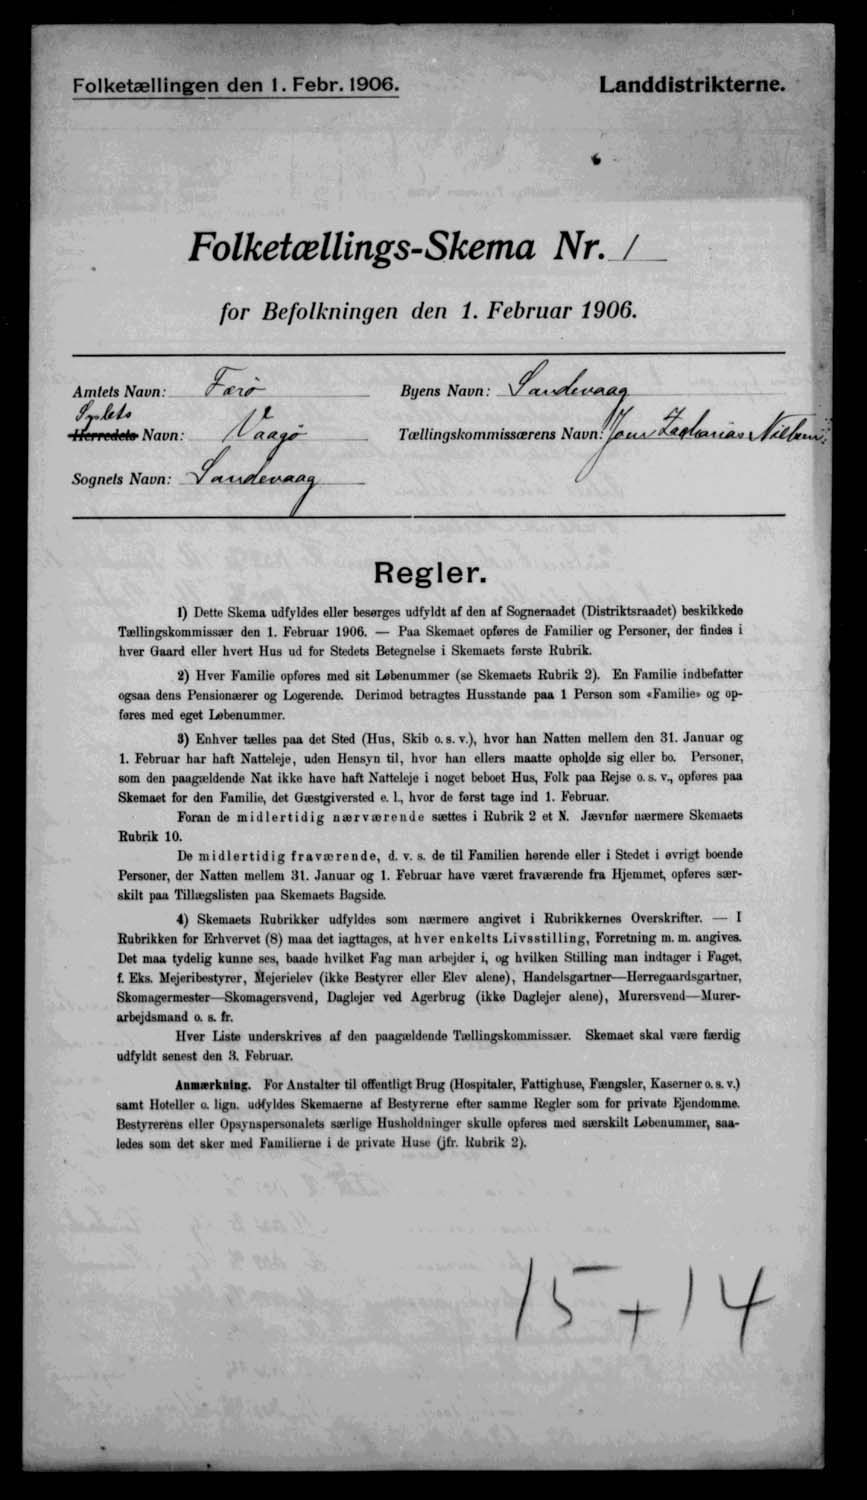 Folketællingen den 1. Febr. 1906.
Landdistrikterne.
Folketællings-Skema Nr. 1
for Befolkningen den 1. Februar 1906.
Amtets Navn: Færø
Byens Navn: Sandevaag
Syslets
Herredets Navn: Vaagø
Tællingskommissærens Navn: Joen Zacharias Nielsen
Sognets Navn: Sandevaag
Regler.
1) Dette Skema udfyldes eller besørges udfyldt af den af Sogneraadet (Distriktsraadet) beskikkede
Tællingskommissær den 1. Februar 1906. — Paa Skemaet opføres de Familier og Personer, der findes i
hver Gaard eller hvert Hus ud for Stedets Betegnelse i Skemaets første Rubrik.
2) Hver Familie opføres med sit Løbenummer (se Skemaets Rubrik 2). En Familie indbefatter
ogsaa dens Pensionærer og Logerende. Derimod betragtes Husstande paa 1 Person som «Familie» og op-
føres med eget Løbenummer.
3) Enhver tælles paa det Sted (Hus, Skib o. s. v.), hvor han Natten mellem den 31. Januar og
1. Februar har haft Natteleje, uden Hensyn til, hvor han ellers maatte opholde sig eller bo. Personer,
som den paagældende Nat ikke have haft Natteleje i noget beboet Hus, Folk paa Rejse o. s. v., opføres paa
Skemaet for den Familie, det Gæstgiversted e. l., hvor de først tage ind 1. Februar.
Foran de midlertidig nærværende sættes i Rubrik 2 et N. Jævnfør nærmere Skemaets
Rubrik 10.
De midlertidig fraværende, d. v. s. de til Familien hørende eller i Stedet i øvrigt boende
Personer, der Natten mellem 31. Januar og 1. Februar have været fraværende fra Hjemmet, opføres sær-
skilt paa Tillægslisten paa Skemaets Bagside.
4) Skemaets Rubrikker udfyldes som nærmere angivet i Rubrikkernes Overskrifter. — I
Rubrikken for Erhvervet (8) maa det iagttages, at hver enkelts Livsstilling, Forretning m. m. angives.
Det maa tydelig kunne ses, baade hvilket Fag man arbejder i, og hvilken Stilling man indtager i Faget,
f. Eks. Mejeribestyrer, Mejerielev (ikke Bestyrer eller Elev alene), Handelsgartner—Herregaardsgartner,
Skomagermester—Skomagersvend, Daglejer ved Agerbrug (ikke Daglejer alene), Murersvend—Murer-
arbejdsmand o. s. fr.
Hver Liste underskrives af den paagældende Tællingskommissær. Skemaet skal være færdig
udfyldt senest den 3. Februar.
Anmærkning. For Anstalter til offentligt Brug (Hospitaler, Fattighuse, Fængsler, Kaserner o. s. v.)
samt Hoteller o. lign. udfyldes Skemaerne af Bestyrerne efter samme Regler som for private Ejendomme.
Bestyrerens eller Opsynspersonalets særlige Husholdninger skulle opføres med særskilt Løbenummer, saa-
ledes som det sker med Familierne i de private Huse (jfr. Rubrik 2).
15 + 14